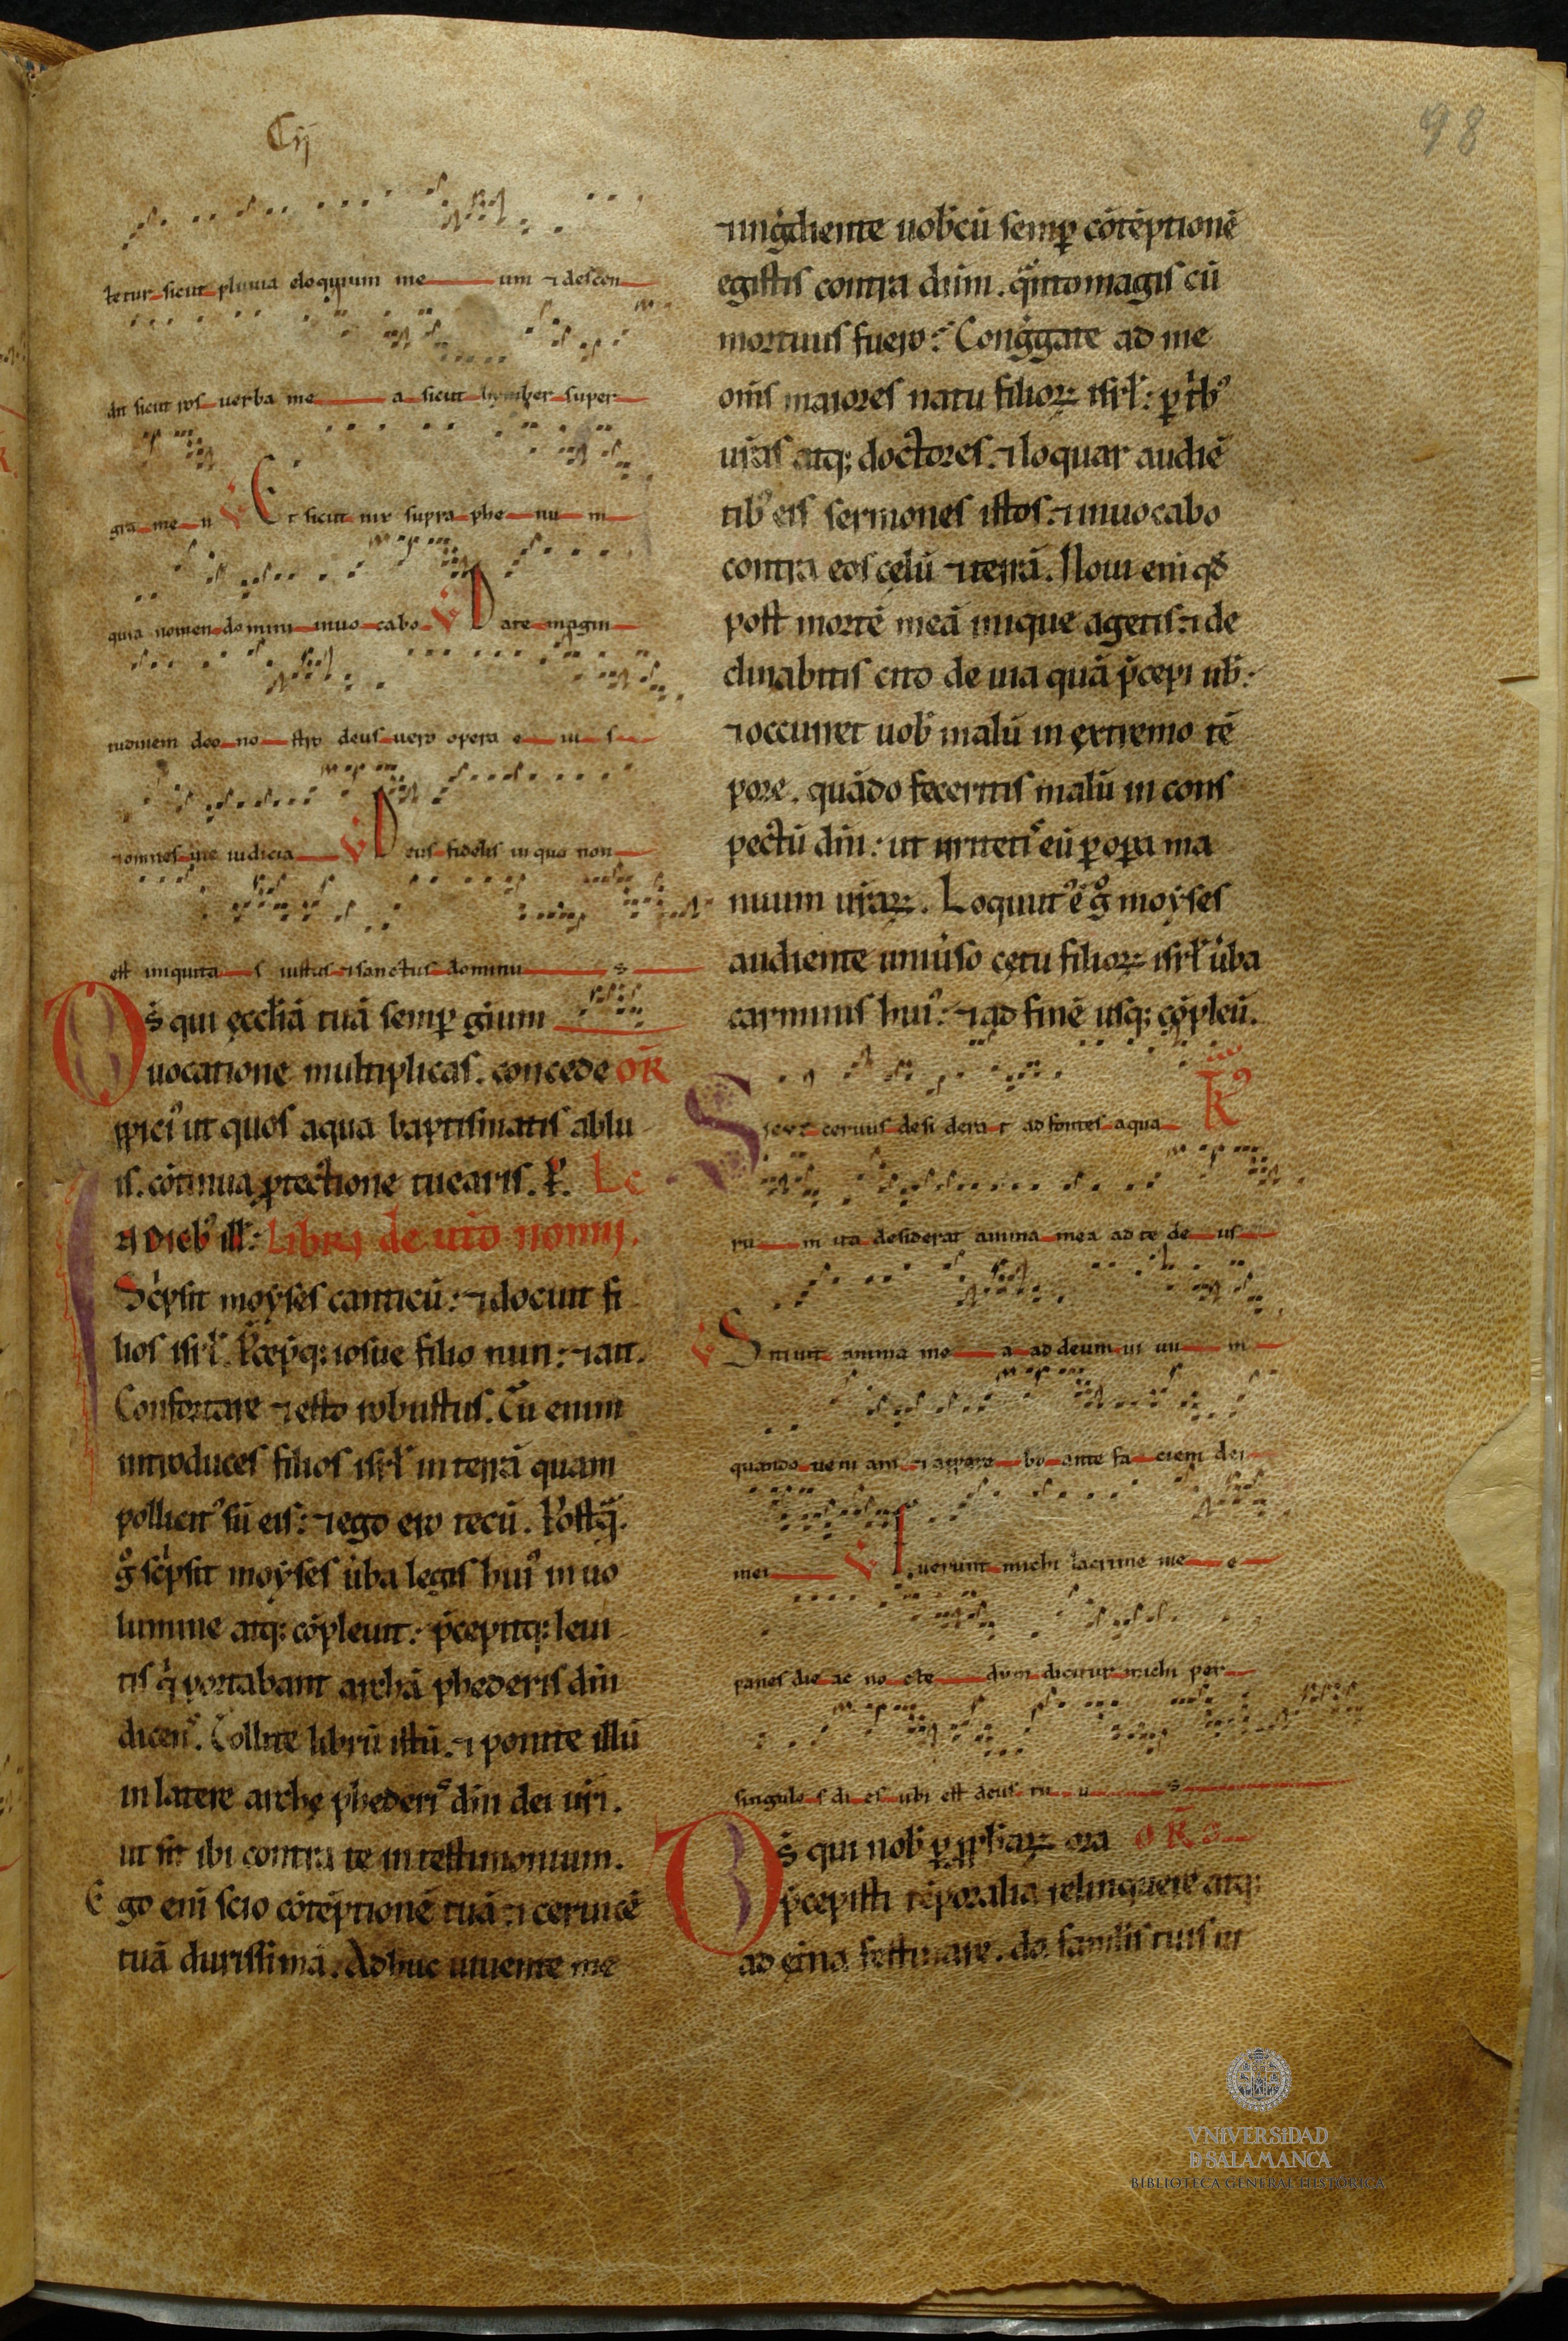 Cij
98
tetur sicut pluuia eloquium me um ⁊ descen
dat sicut ros uerba me a sicut hymber super
gra me n V Et sicut nix supra phe nu m
quia nomen domini inuo cabo V Date magni
tudinem deo no stro deus uero opera e iu s
⁊ omnes uie iudicia V Deus fidelis in quo non
est iniquita s iustus ⁊ sanctus dominu s
Ds̄ qui ęccl̄iā tuā semꝑ gẽium
uocatione multiplicas. concede OR̄
ꝓpici⁹ ut quos aqua baptismatis ablu
is. cōtinua ꝓtectione tuearis. P. Le
In dieb⁹ ill̄: Libri deutro nomij.
Scͥpsit moẏses canticū: ⁊ docuit fi
lios isrl̄. P̄cepͭq; iosue filio nun: ⁊ ait.
Confortare ⁊ esto robustus. Tu enim
introduces filios isrl̄ in terrā quam
pollicit⁹ sū eis: ⁊ ego ero tecū. Postq̄ᷓ
gͦ scͥpsit moẏses ūba legis hui⁹ in uo
lumine atq; cōpleuit: p̄cepitq; leui
tis qͥ portabant archā phederis dn̄i
dicens. Tollite librū istū. ⁊ ponite illū
in latere archę phederis dn̄i dei ur̄i.
ut sit ibi contra te in testimonium.
Ego eni scio cōtēptionē tuā ⁊ ceruicē
tuā durissimā. Adhuc uiuente me
⁊ ingͤdiente uob̄cū semꝑ cōtēptionē
egistis contra dn̄m. qͣnto magis cū
mortuus fuero? Congͤgate ad me
om̄s maiores natu filioꝝ isrl̄: ꝑ tͥb⁹
ur̄as atq; doctores. ⁊ loquar audiē
tib⁹ eis sermones istos: ⁊ inuocabo
contra eos cęlū ⁊ terrā. Noui eni qđ
post mortē meā inique agetis: ⁊ de
clinabitis cito de uia quā p̄cepi ub̄:
⁊ occurret uob̄ malū in extremo tē
pore. quādo feceritis malū in cons
pectū dn̄i: ut irritetis eū ꝑ oꝑa ma
nuum ur̄aꝝ. Loquut⁹ ē gͦ moẏses
audiente uniu̇so cętu filioꝝ isrl̄ u̇ba
carminis hui⁹: ⁊ ad finē usq; cōpleū.
Sicut ceruus desi dera t ad fontes aqua K
ru m ita desiderat anima mea ad te de us
V Sitiuit anima me a ad deum ui uu m
quando ueni am ⁊ appare bo ante fa ciem dei
mei V Fuerunt michi lacrime me e
panes die ac no cte dum dicitur michi per
singulo s di es ubi est deus tu u s
Ds̄ qui nob̄ ꝑ ꝓph̄aꝝ ora OR̄
p̄cepisti tēporalia relinquere atq;
ad ęt̄na festinare. da famulis tuis ut
VNIVERSIDAD
D SALAMANCA
BIBLIOTECA GENERAL HISTÓRICA